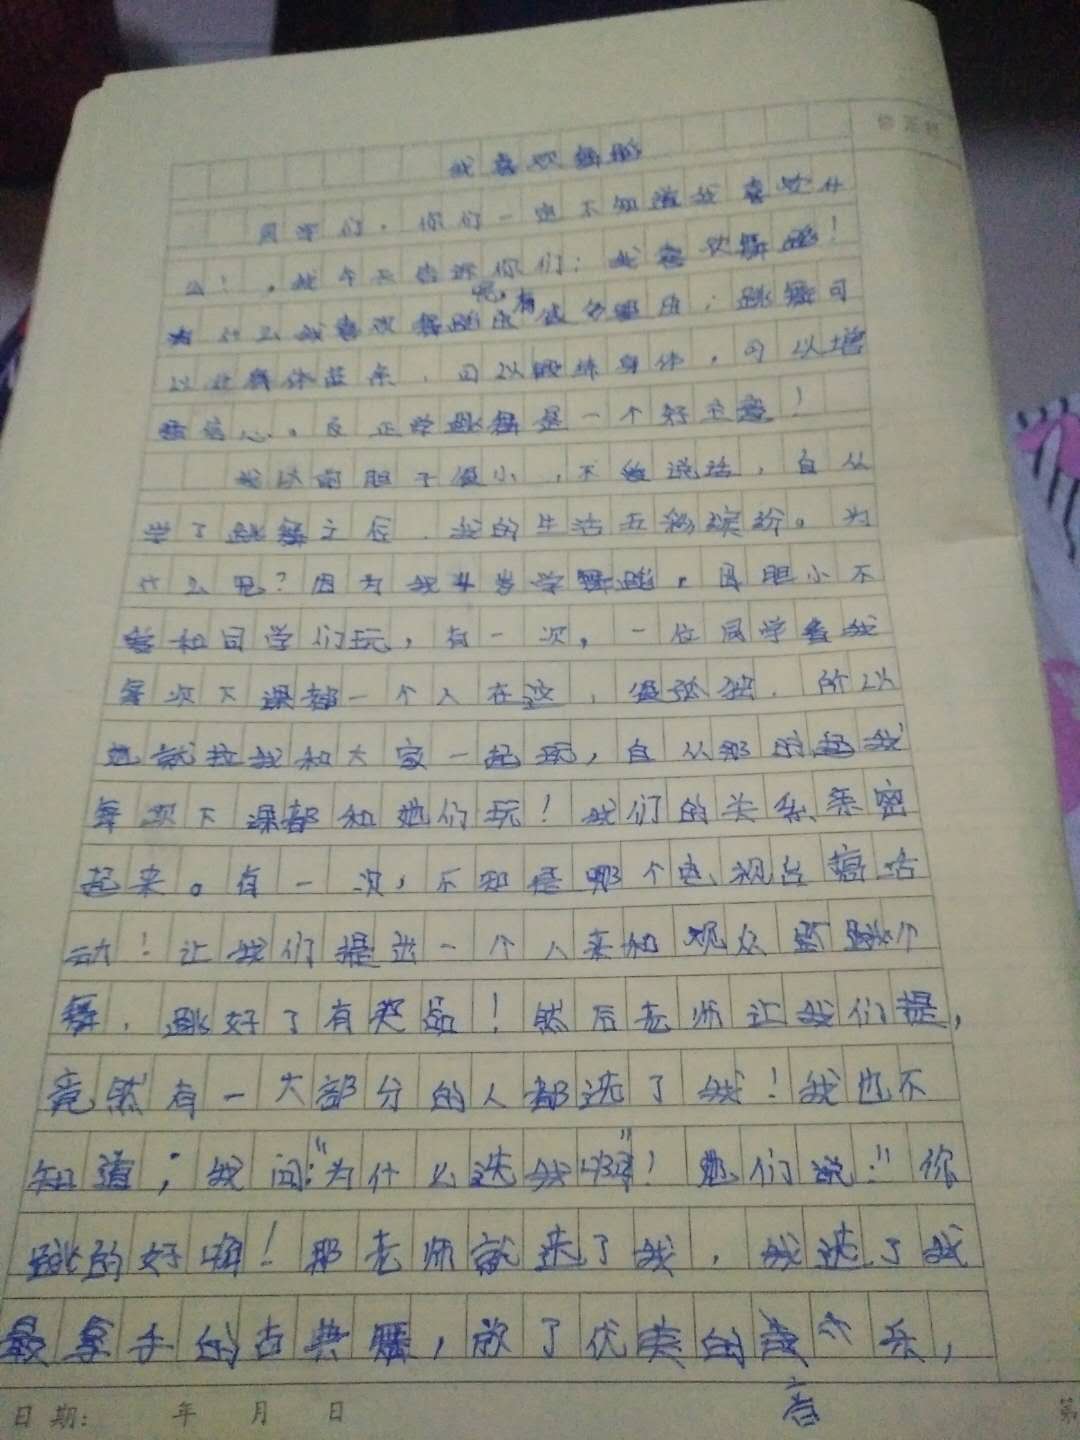 我喜欢舞蹈
同学们，你们一定不知道我喜欢什
么！，我今天告诉你们：我喜欢舞蹈！
为什么我喜欢舞蹈呢，有很多好处：跳舞可
以让身体柔，可以锻炼身体，可以增
强信心。反正学跳舞是一个好主意！
我以前胆子很小，不爱说话，自从
学了跳舞之后，我的生活五彩缤纷。为
什么呢？因为我4岁学舞蹈，因胆小不
爱和同学们玩，有一次，一位同学看我
每次下课都一个人在这，很孤独，所以
她就拉我和大家一起玩，自从那时起我
每次下课都和她们玩！我们的关系亲密
起来。有一次，不知是哪个电视台搞活
动！让我们提出一个人来和观众跳个
舞，跳好了有奖品！然后老师让我们提，
竟然有一大部分的人都选了我！我也不
知道；我问："为什么选我啊"！她们说："你
跳的好啊！那老师就来了我，我选了我
最拿手的古典舞，放了优美的音乐，
音
日期： 年 月 日
第